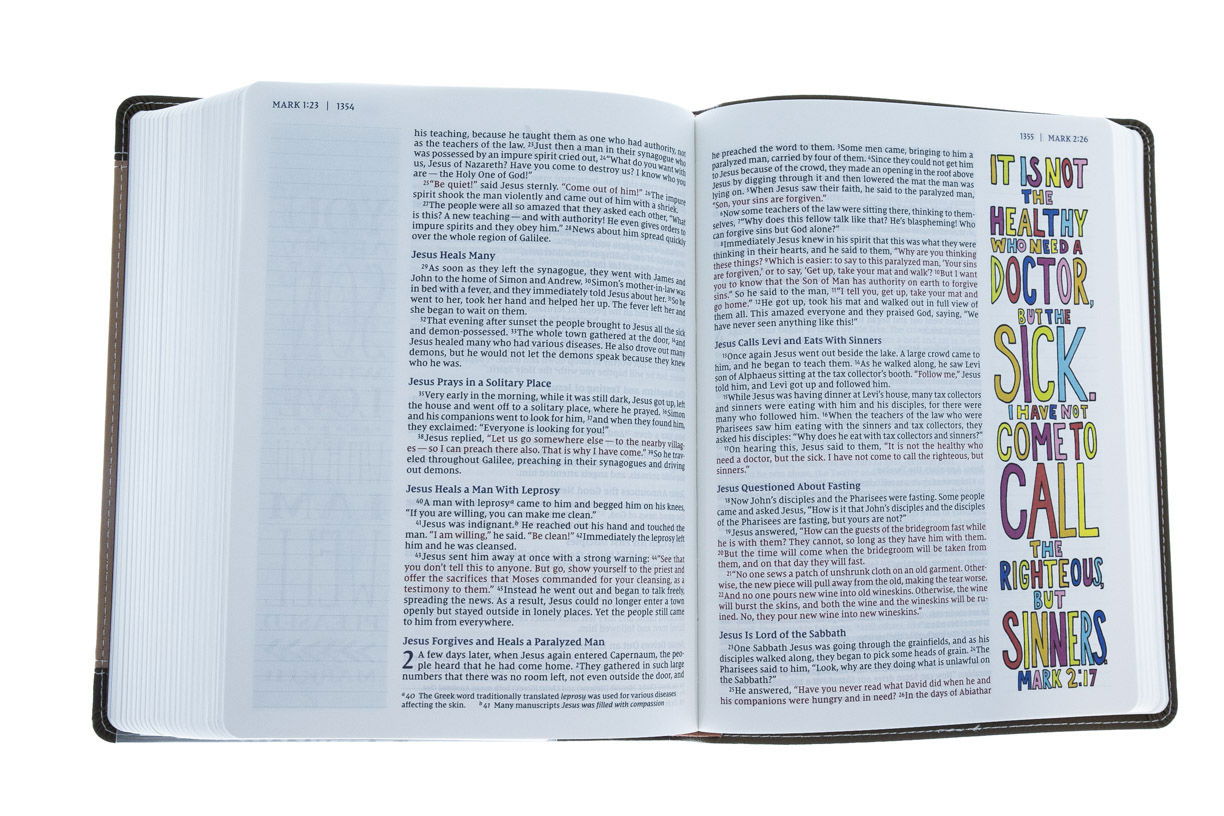 MARK 1:23 | 1354
his teaching, because he taught them as one who had authority, not
as the teachers of the law. 23Just then a man in their synagogue who
was possessed by an impure spirit cried out, 24“What do you want with
us, Jesus of Nazareth? Have you come to destroy us? I know who you
are — the Holy One of God!”
25“Be quiet!” said Jesus sternly. “Come out of him!” 26The impure
spirit shook the man violently and came out of him with a shriek.
27The people were all so amazed that they asked each other, “What
is this? A new teaching — and with authority! He even gives orders to
impure spirits and they obey him.” 28News about him spread quickly
over the whole region of Galilee.
Jesus Heals Many
29As soon as they left the synagogue, they went with James and
John to the home of Simon and Andrew. 30Simon’s mother-in-law was
in bed with a fever, and they immediately told Jesus about her. 31So he
went to her, took her hand and helped her up. The fever left her and
she began to wait on them.
32That evening after sunset the people brought to Jesus all the sick
and demon-possessed. 33The whole town gathered at the door, 34and
Jesus healed many who had various diseases. He also drove out many
demons, but he would not let the demons speak because they knew
who he was.
Jesus Prays in a Solitary Place
35Very early in the morning, while it was still dark, Jesus got up, left
the house and went off to a solitary place, where he prayed. 36Simon
and his companions went to look for him, 37and when they found him,
they exclaimed: “Everyone is looking for you!”
38Jesus replied, “Let us go somewhere else — to the nearby villag-
es — so I can preach there also. That is why I have come.” 39So he trav-
eled throughout Galilee, preaching in their synagogues and driving
out demons.
Jesus Heals a Man With Leprosy
40A man with leprosya came to him and begged him on his knees,
“If you are willing, you can make me clean.”
41Jesus was indignant.b He reached out his hand and touched the
man. “I am willing,” he said. “Be clean!” 42Immediately the leprosy left
him and he was cleansed.
43Jesus sent him away at once with a strong warning: 44“See that
you don’t tell this to anyone. But go, show yourself to the priest and
offer the sacrifices that Moses commanded for your cleansing, as a
testimony to them.” 45Instead he went out and began to talk freely,
spreading the news. As a result, Jesus could no longer enter a town
openly but stayed outside in lonely places. Yet the people still came
to him from everywhere.
Jesus Forgives and Heals a Paralyzed Man
2 A few days later, when Jesus again entered Capernaum, the peo-
ple heard that he had come home. 2They gathered in such large
numbers that there was no room left, not even outside the door, and
a 40 The Greek word traditionally translated leprosy was used for various diseases
affecting the skin. b 41 Many manuscripts Jesus was filled with compassion
1355 | MARK 2:26
he preached the word to them. 3Some men came, bringing to him a
paralyzed man, carried by four of them. 4Since they could not get him
to Jesus because of the crowd, they made an opening in the roof above
Jesus by digging through it and then lowered the mat the man was
lying on. 5When Jesus saw their faith, he said to the paralyzed man,
“Son, your sins are forgiven.”
6Now some teachers of the law were sitting there, thinking to them-
selves, 7“Why does this fellow talk like that? He’s blaspheming! Who
can forgive sins but God alone?”
8Immediately Jesus knew in his spirit that this was what they were
thinking in their hearts, and he said to them, “Why are you thinking
these things? 9Which is easier: to say to this paralyzed man, ‘Your sins
are forgiven,’ or to say, ‘Get up, take your mat and walk’? 10But I want
you to know that the Son of Man has authority on earth to forgive
sins.” So he said to the man, 11“I tell you, get up, take your mat and
go home.” 12He got up, took his mat and walked out in full view of
them all. This amazed everyone and they praised God, saying, “We
have never seen anything like this!”
Jesus Calls Levi and Eats With Sinners
13Once again Jesus went out beside the lake. A large crowd came to
him, and he began to teach them. 14As he walked along, he saw Levi
son of Alphaeus sitting at the tax collector’s booth. “Follow me,” Jesus
told him, and Levi got up and followed him.
15While Jesus was having dinner at Levi’s house, many tax collectors
and sinners were eating with him and his disciples, for there were
many who followed him. 16When the teachers of the law who were
Pharisees saw him eating with the sinners and tax collectors, they
asked his disciples: “Why does he eat with tax collectors and sinners?”
17On hearing this, Jesus said to them, “It is not the healthy who
need a doctor, but the sick. I have not come to call the righteous, but
sinners.”
Jesus Questioned About Fasting
18Now John’s disciples and the Pharisees were fasting. Some people
came and asked Jesus, “How is it that John’s disciples and the disciples
of the Pharisees are fasting, but yours are not?”
19Jesus answered, “How can the guests of the bridegroom fast while
he is with them? They cannot, so long as they have him with them.
20But the time will come when the bridegroom will be taken from
them, and on that day they will fast.
21“No one sews a patch of unshrunk cloth on an old garment. Other-
wise, the new piece will pull away from the old, making the tear worse.
22And no one pours new wine into old wineskins. Otherwise, the wine
will burst the skins, and both the wine and the wineskins will be ru-
ined. No, they pour new wine into new wineskins.”
Jesus Is Lord of the Sabbath
23One Sabbath Jesus was going through the grainfields, and as his
disciples walked along, they began to pick some heads of grain. 24The
Pharisees said to him, “Look, why are they doing what is unlawful on
the Sabbath?”
25He answered, “Have you never read what David did when he and
his companions were hungry and in need? 26In the days of Abiathar
IT IS NOT
THE
HEALTHY
WHO NEED A
DOCTOR,
BUT THE
SICK.
I HAVE NOT
COME TO
CALL
THE
RIGHTEOUS,
BUT
SINNERS.
MARK 2:17